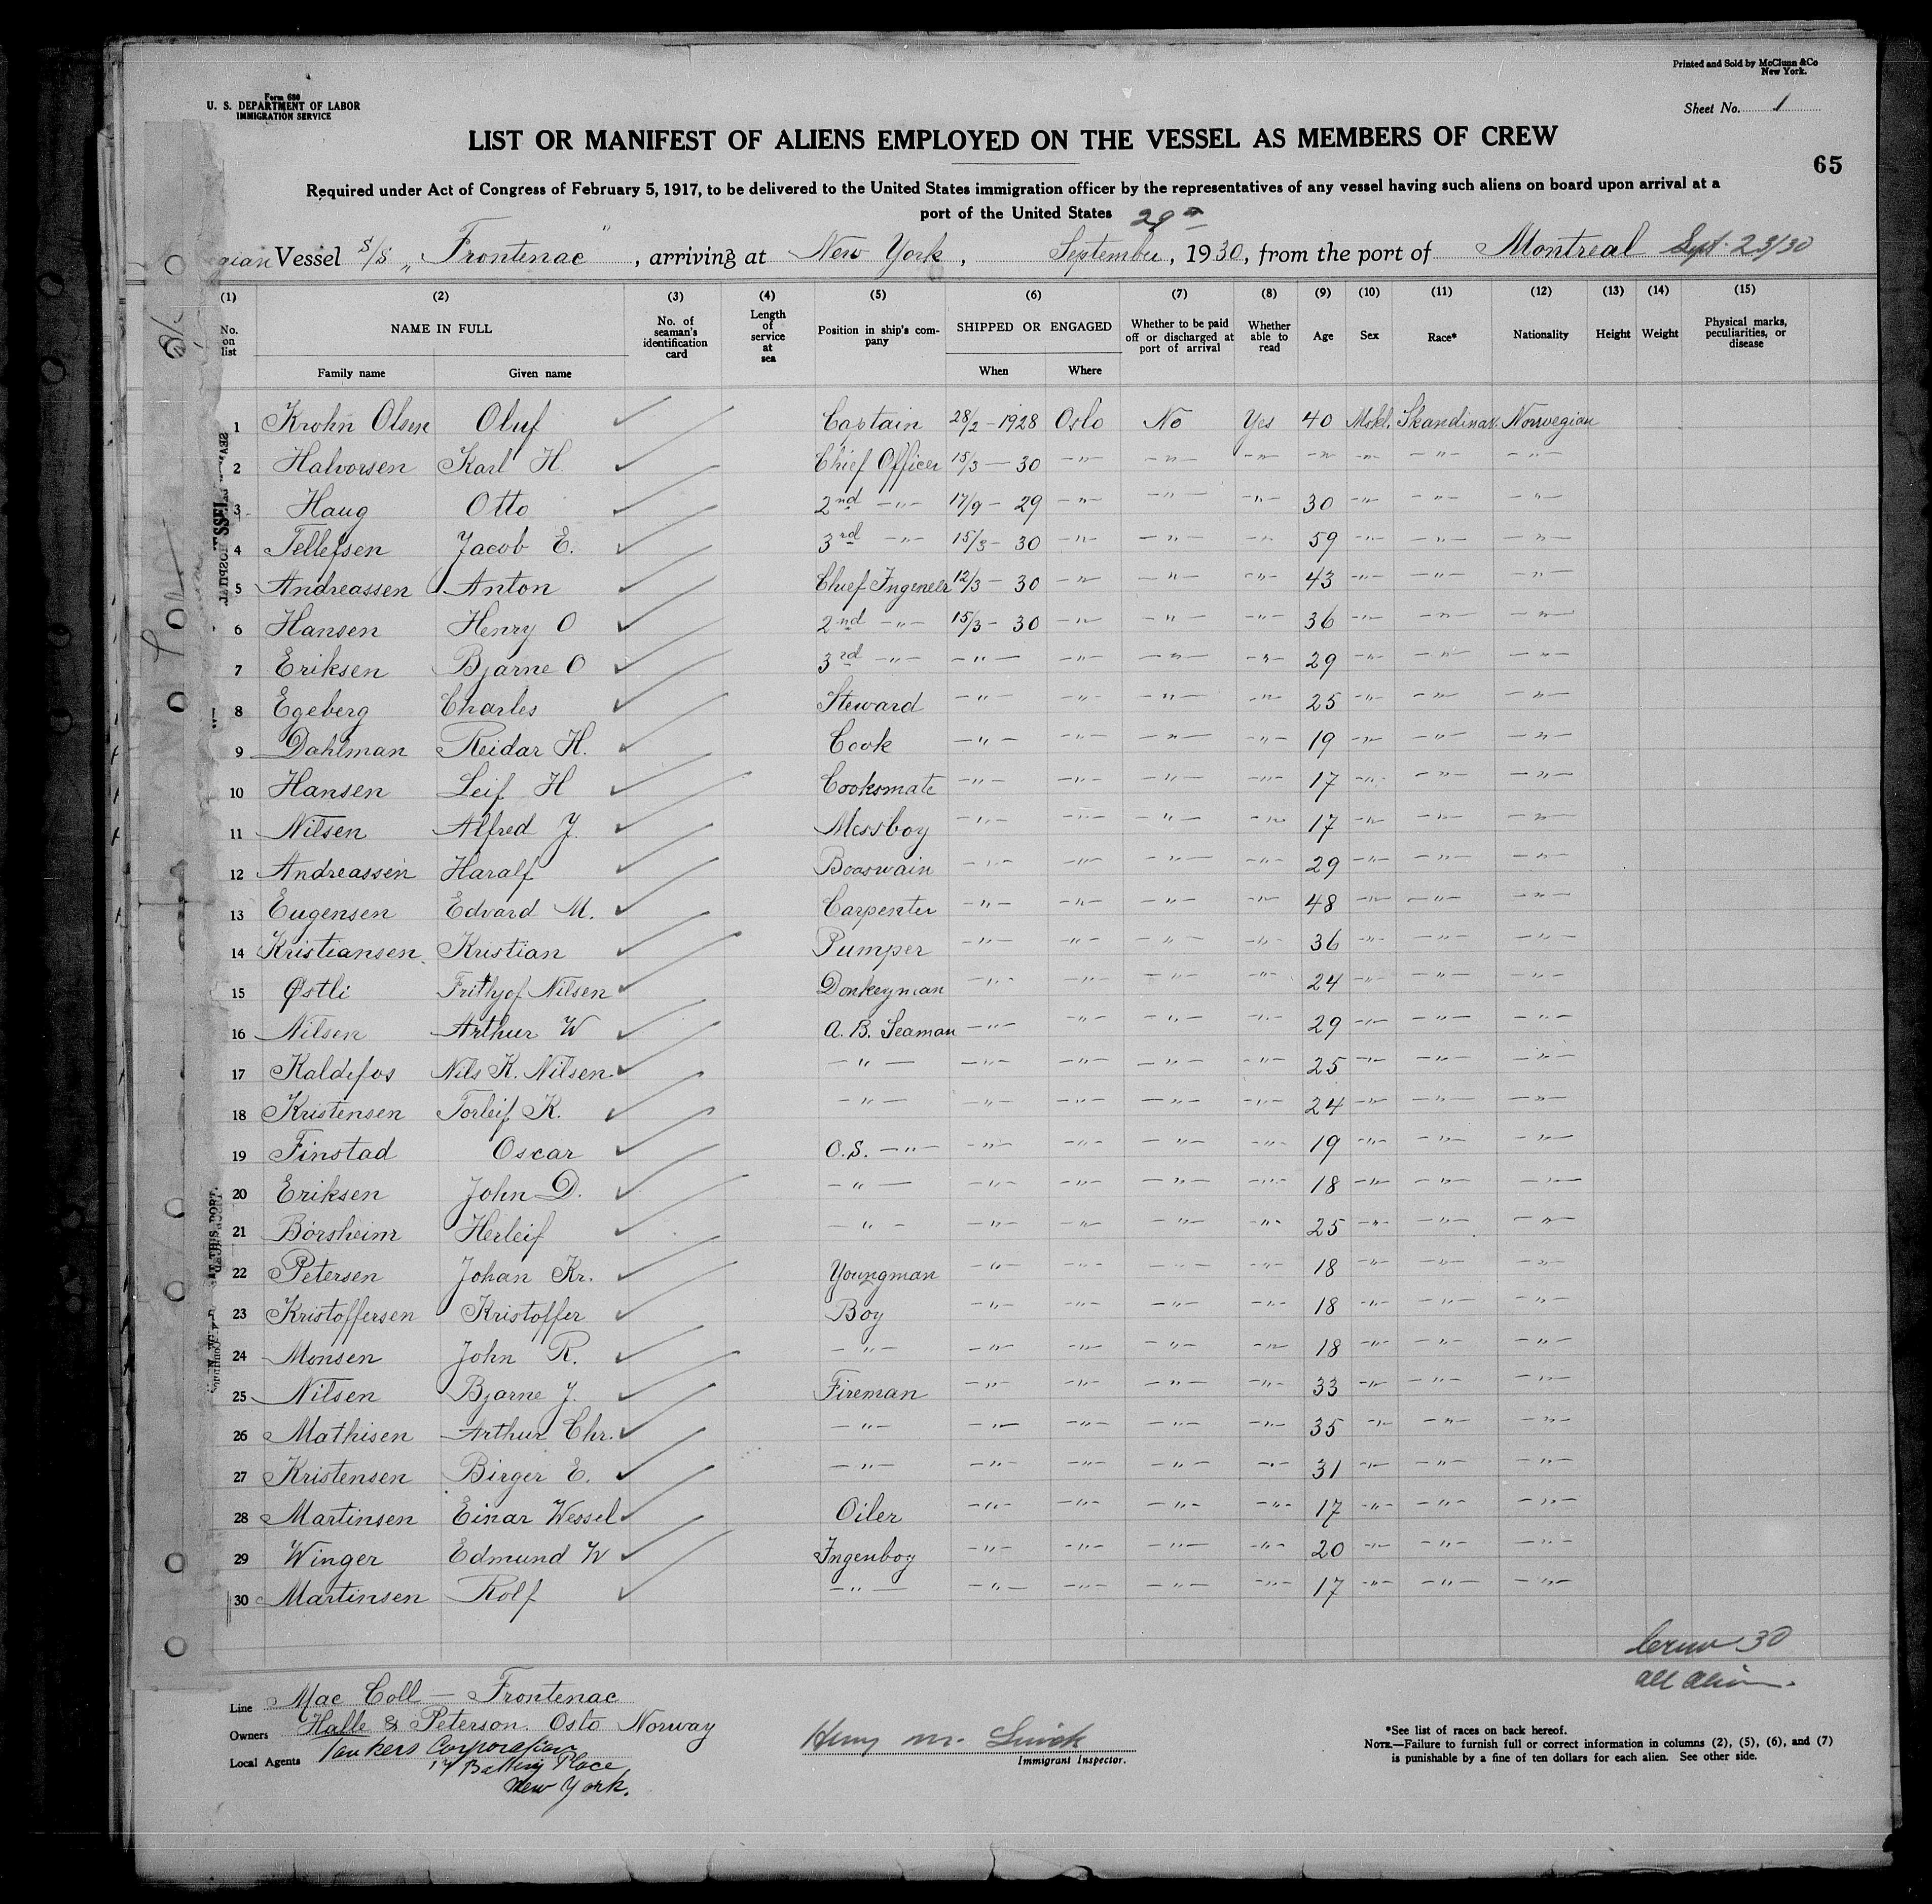 Printed and Sold by McClunn &Co
New York.
Form 680
U. S. DEPARTMENT OF LABOR
IMMIGRATION SERVICE
Sheet No. 1
LIST OR MANIFEST OF ALIENS EMPLOYED ON THE VESSEL AS MEMBERS OF CREW
65
Required under Act of Congress of February 5, 1917, to be delivered to the United States immigration officer by the representatives of any vessel having such aliens on board upon arrival at a
port of the United States
gian Vessel S/S „Frontenac", arriving at New York, September 29th, 1930, from the port of Montreal Sept. 23/30
(1) (2) (3) (4) (5) (6) (7) (8) (9) (10) (11) (12) (13) (14) (15)
No. on list NAME IN FULL Family name Given name No. of seaman's identification card Length of service at sea Position in ship's company SHIPPED OR ENGAGED When Where Whether to be paid off or discharged at port of arrival Whether able to read Age Sex Race* Nationality Height Weight Physical marks, peculiarities, or disease
1 Krohn Olsen Oluf ✓ Captain 28/2 - 1928 Oslo No Yes 40 Mskl. Skandinav. Norwegian
2 Halvorsen Karl H. ✓ Chief Officer 15/3 - 30 -"- -"- -"- -"- -"- -"- -"-
3 Haug Otto ✓ 2nd -"- 17/9 - 29 -"- -"- -"- 30 -"- -"- -"-
4 Tellefsen Jacob E. ✓ 3rd -"- 15/3 - 30 -"- -"- -"- 59 -"- -"- -"-
5 Andreassen Anton ✓ Chief Ingeneer 12/3 - 30 -"- -"- -"- 43 -"- -"- -"-
6 Hansen Henry O ✓ 2nd -"- 15/3 - 30 -"- -"- -"- 36 -"- -"- -"-
7 Eriksen Bjarne O ✓ 3rd -"- -"- -"- -"- -"- 29 -"- -"- -"-
8 Egeberg Charles ✓ Steward -"- -"- -"- -"- 25 -"- -"- -"-
9 Dahlman Reidar H. ✓ Cook -"- -"- -"- -"- 19 -"- -"- -"-
10 Hansen Leif H ✓ Cooksmate -"- -"- -"- -"- 17 -"- -"- -"-
11 Nilsen Alfred J. ✓ Messboy -"- -"- -"- -"- 17 -"- -"- -"-
12 Andreassen Haralf ✓ Boaswain -"- -"- -"- -"- 29 -"- -"- -"-
13 Eugensen Edvard M. ✓ Carpenter -"- -"- -"- -"- 48 -"- -"- -"-
14 Kristiansen Kristian ✓ Pumper -"- -"- -"- -"- 36 -"- -"- -"-
15 Østli Frithjof Nilsen ✓ Donkeyman -"- -"- -"- -"- 24 -"- -"- -"-
16 Nilsen Arthur W ✓ A. B. Seaman -"- -"- -"- -"- 29 -"- -"- -"-
17 Kaldefos Nils K. Nilsen ✓ -"- -"- -"- -"- -"- 25 -"- -"- -"-
18 Kristensen Torleif K. ✓ -"- -"- -"- -"- -"- 24 -"- -"- -"-
19 Finstad Oscar ✓ O.S. -"- -"- -"- -"- -"- 19 -"- -"- -"-
20 Eriksen John D. ✓ -"- -"- -"- -"- -"- 18 -"- -"- -"-
21 Børsheim Herleif ✓ -"- -"- -"- -"- -"- 25 -"- -"- -"-
22 Petersen Johan Kr. ✓ Youngman -"- -"- -"- -"- 18 -"- -"- -"-
23 Kristoffersen Kristoffer ✓ Boy -"- -"- -"- -"- 18 -"- -"- -"-
24 Monsen John R. ✓ -"- -"- -"- -"- -"- 18 -"- -"- -"-
25 Nilsen Bjarne J. ✓ Fireman -"- -"- -"- -"- 33 -"- -"- -"-
26 Mathisen Arthur Chr. ✓ -"- -"- -"- -"- -"- 35 -"- -"- -"-
27 Kristensen Birger E. ✓ -"- -"- -"- -"- -"- 31 -"- -"- -"-
28 Martinsen Einar Wessel ✓ Oiler -"- -"- -"- -"- 17 -"- -"- -"-
29 Winger Edmund W ✓ Ingenboy -"- -"- -"- -"- 20 -"- -"- -"-
30 Martinsen Rolf ✓ -"- -"- -"- -"- -"- 17 -"- -"- -"-
Crew 30
all alien.
Line Mac Coll - Frontenac
Owners Halle & Peterson. Oslo Norway
Local Agents Tankers Corporation
17 Battery Place
New York.
Henry M.
Immigrant Inspector.
*See list of races on back hereof.
NOTE.—Failure to furnish full or correct information in columns (2), (5), (6), and (7)
is punishable by a fine of ten dollars for each alien. See other side.